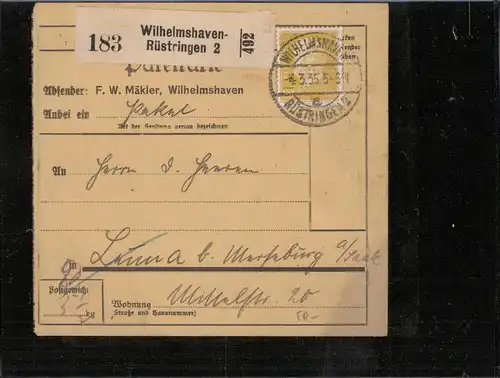 183 Wilhelmshaven-
Rüstringen 2 492
WILHELMSHAVEN
4.3.35.5-6N
a
RÜSTRINGEN 2
Absender: F. W. Mäkler, Wilhelmshaven
Anbei ein Paket
Mit der Sendung genau bezeichnen
An Herrn D. Heeren
in Leuna b. Merseburg a/Saale
Postgewicht
kg
Wohnung Mittelstr. 20
(Straße und Hausnummer)
50-